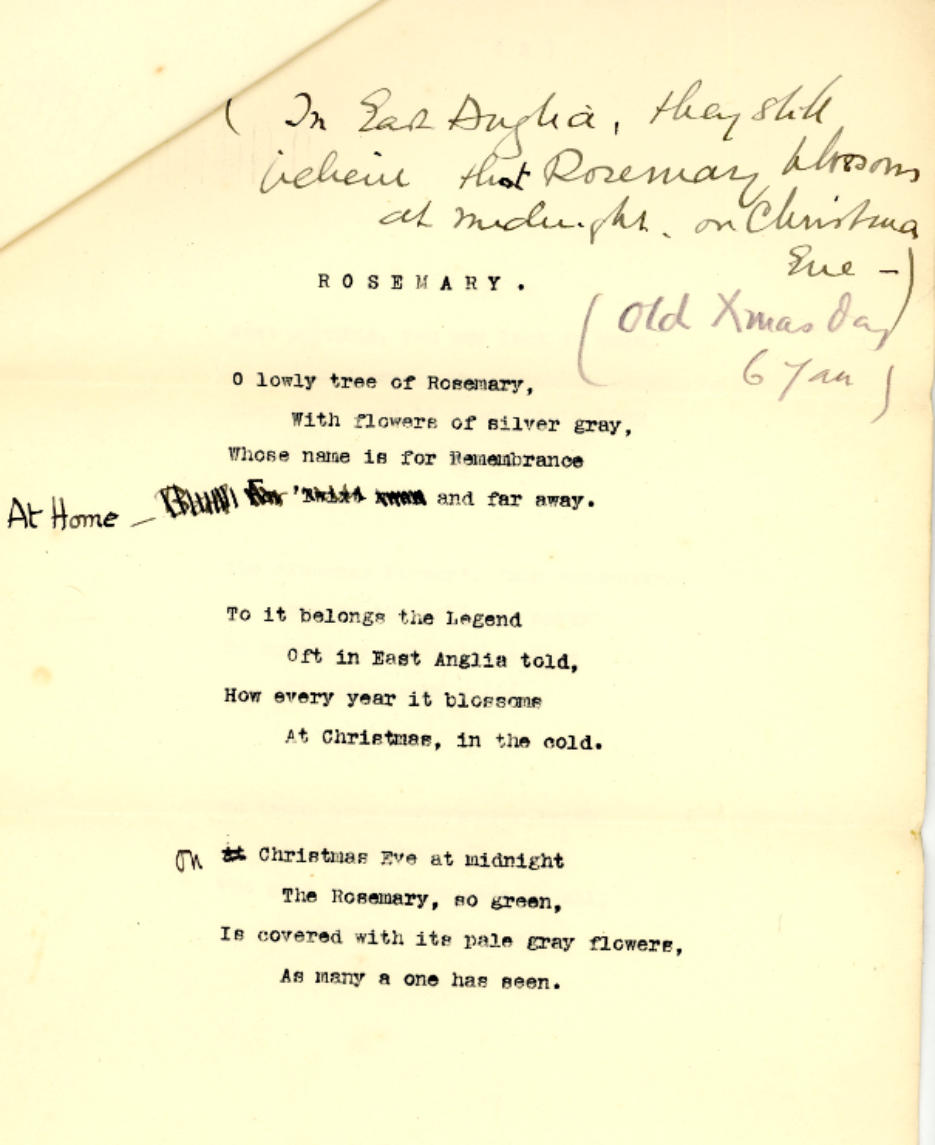 ( In East Anglia, they still
believe that Rosemary blossoms
at midnight. on Christmas
Eve -)
ROSEMARY.
( Old Xmas Day
6 Jan )
O lowly tree of Rosemary,
With flowers of silver gray,
Whose name is for Remembrance
At Home — and far away.
To it belongs the Legend
Oft in East Anglia told,
How every year it blossoms
At Christmas, in the cold.
On at Christmas Eve at midnight
The Rosemary, so green,
Is covered with its pale gray flowers,
As many a one has seen.